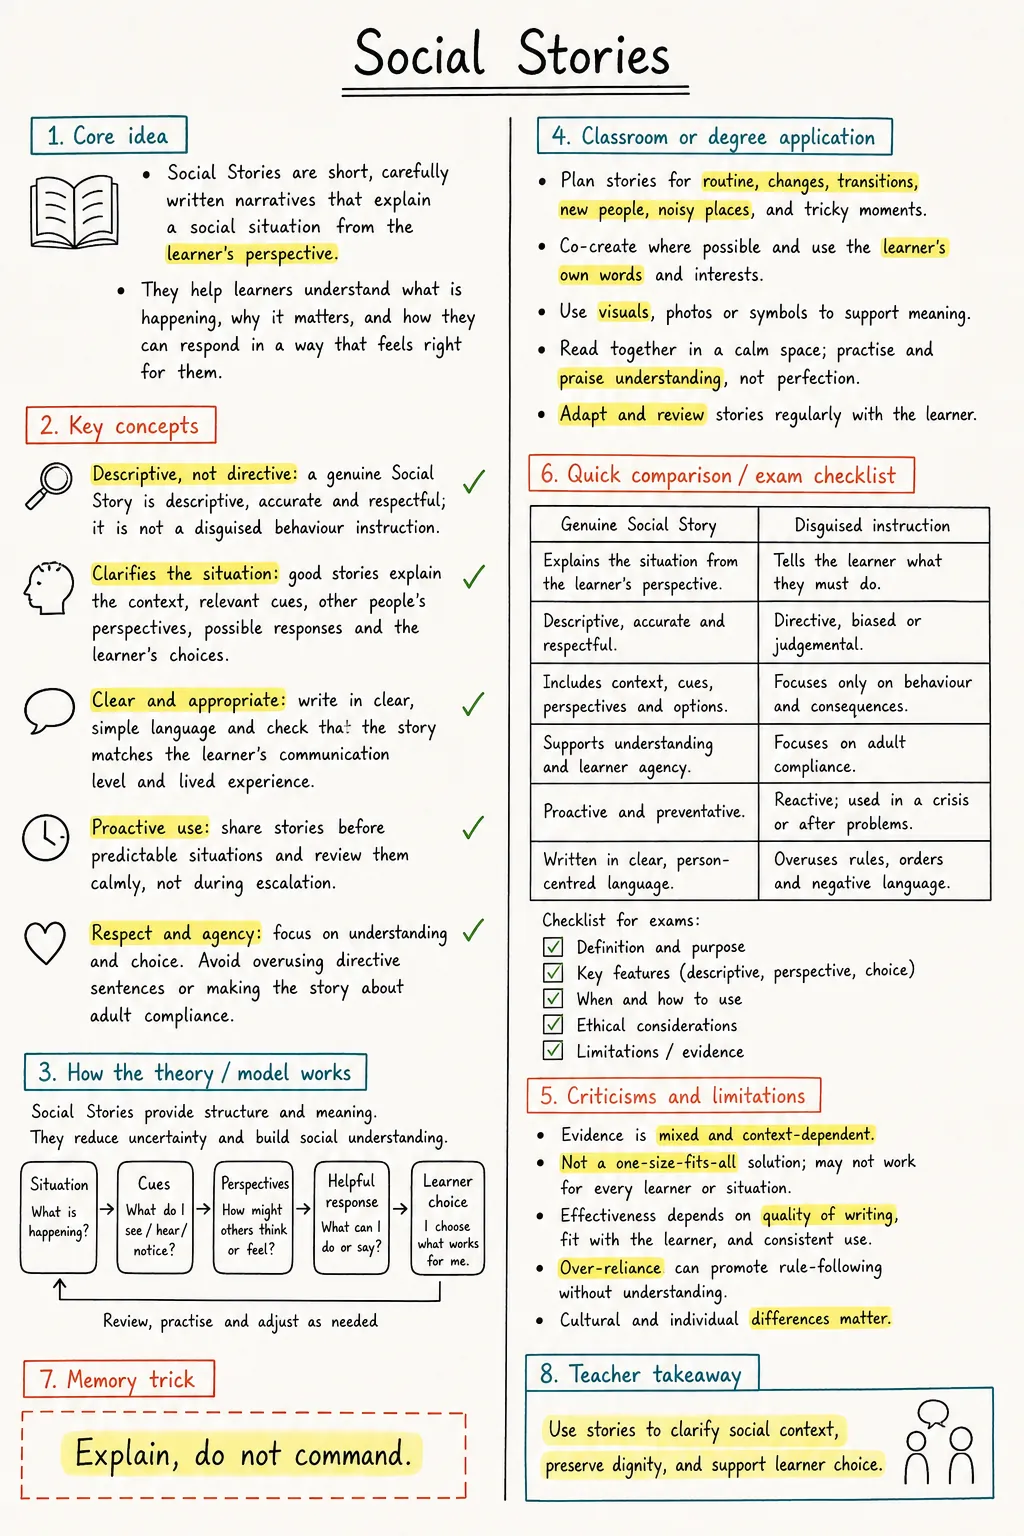 Social Stories
1. Core idea
• Social Stories are short, carefully
written narratives that explain
a social situation from the
learner's perspective.
• They help learners understand what is
happening, why it matters, and how they
can respond in a way that feels right
for them.
2. Key concepts
Descriptive, not directive: a genuine Social
Story is descriptive, accurate and respectful;
it is not a disguised behaviour instruction.
Clarifies the situation: good stories explain
the context, relevant cues, other people's
perspectives, possible responses and the
learner's choices.
Clear and appropriate: write in clear,
simple language and check that the story
matches the learner's communication
level and lived experience.
Proactive use: share stories before
predictable situations and review them
calmly, not during escalation.
Respect and agency: focus on understanding
and choice. Avoid overusing directive
sentences or making the story about
adult compliance.
3. How the theory / model works
Social Stories provide structure and meaning.
They reduce uncertainty and build social understanding.
Situation
What is
happening?
Cues
What do I
see / hear /
notice?
Perspectives
How might
others think
or feel?
Helpful
response
What can I
do or say?
Learner
choice
I choose
what works
for me.
Review, practise and adjust as needed
7. Memory trick
Explain, do not command.
4. Classroom or degree application
• Plan stories for routine, changes, transitions,
new people, noisy places, and tricky moments.
• Co-create where possible and use the learner's
own words and interests.
• Use visuals, photos or symbols to support meaning.
• Read together in a calm space; practise and
praise understanding, not perfection.
• Adapt and review stories regularly with the learner.
6. Quick comparison / exam checklist
Genuine Social Story
Disguised instruction
Explains the situation from
the learner's perspective.
Tells the learner what
they must do.
Descriptive, accurate and
respectful.
Directive, biased or
judgemental.
Includes context, cues,
perspectives and options.
Focuses only on behaviour
and consequences.
Supports understanding
and learner agency.
Focuses on adult
compliance.
Proactive and preventative.
Reactive; used in a crisis
or after problems.
Written in clear, person-
centred language.
Overuses rules, orders
and negative language.
Checklist for exams:
Definition and purpose
Key features (descriptive, perspective, choice)
When and how to use
Ethical considerations
Limitations / evidence
5. Criticisms and limitations
• Evidence is mixed and context-dependent.
• Not a one-size-fits-all solution; may not work
for every learner or situation.
• Effectiveness depends on quality of writing,
fit with the learner, and consistent use.
• Over-reliance can promote rule-following
without understanding.
• Cultural and individual differences matter.
8. Teacher takeaway
Use stories to clarify social context,
preserve dignity, and support learner choice.